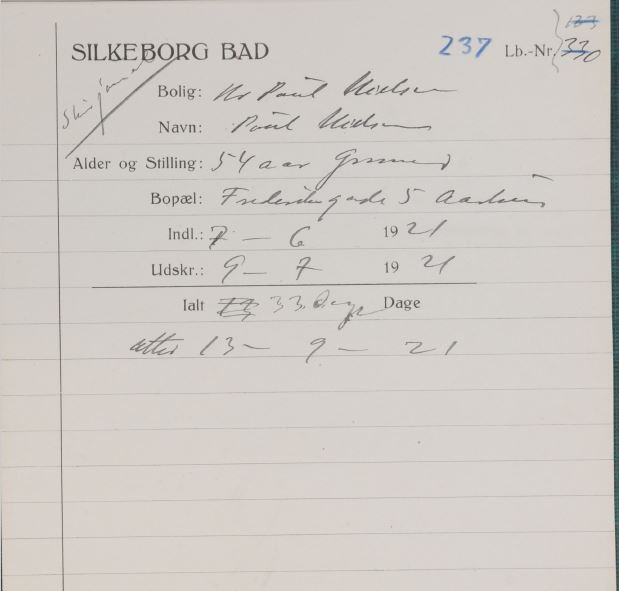 SILKEBORG BAD 237 Lb.-Nr. 330
Bolig: Hr Poul Nielsen
Navn: Poul Nielsen
Alder og Stilling: 54 aar
Bopæl: 5 Aarhus
Indl.: 7 - 6 1921
Udskr.: 9 - 7 1921
Ialt 33 Dage Dage
atter 13 - 9 - 21